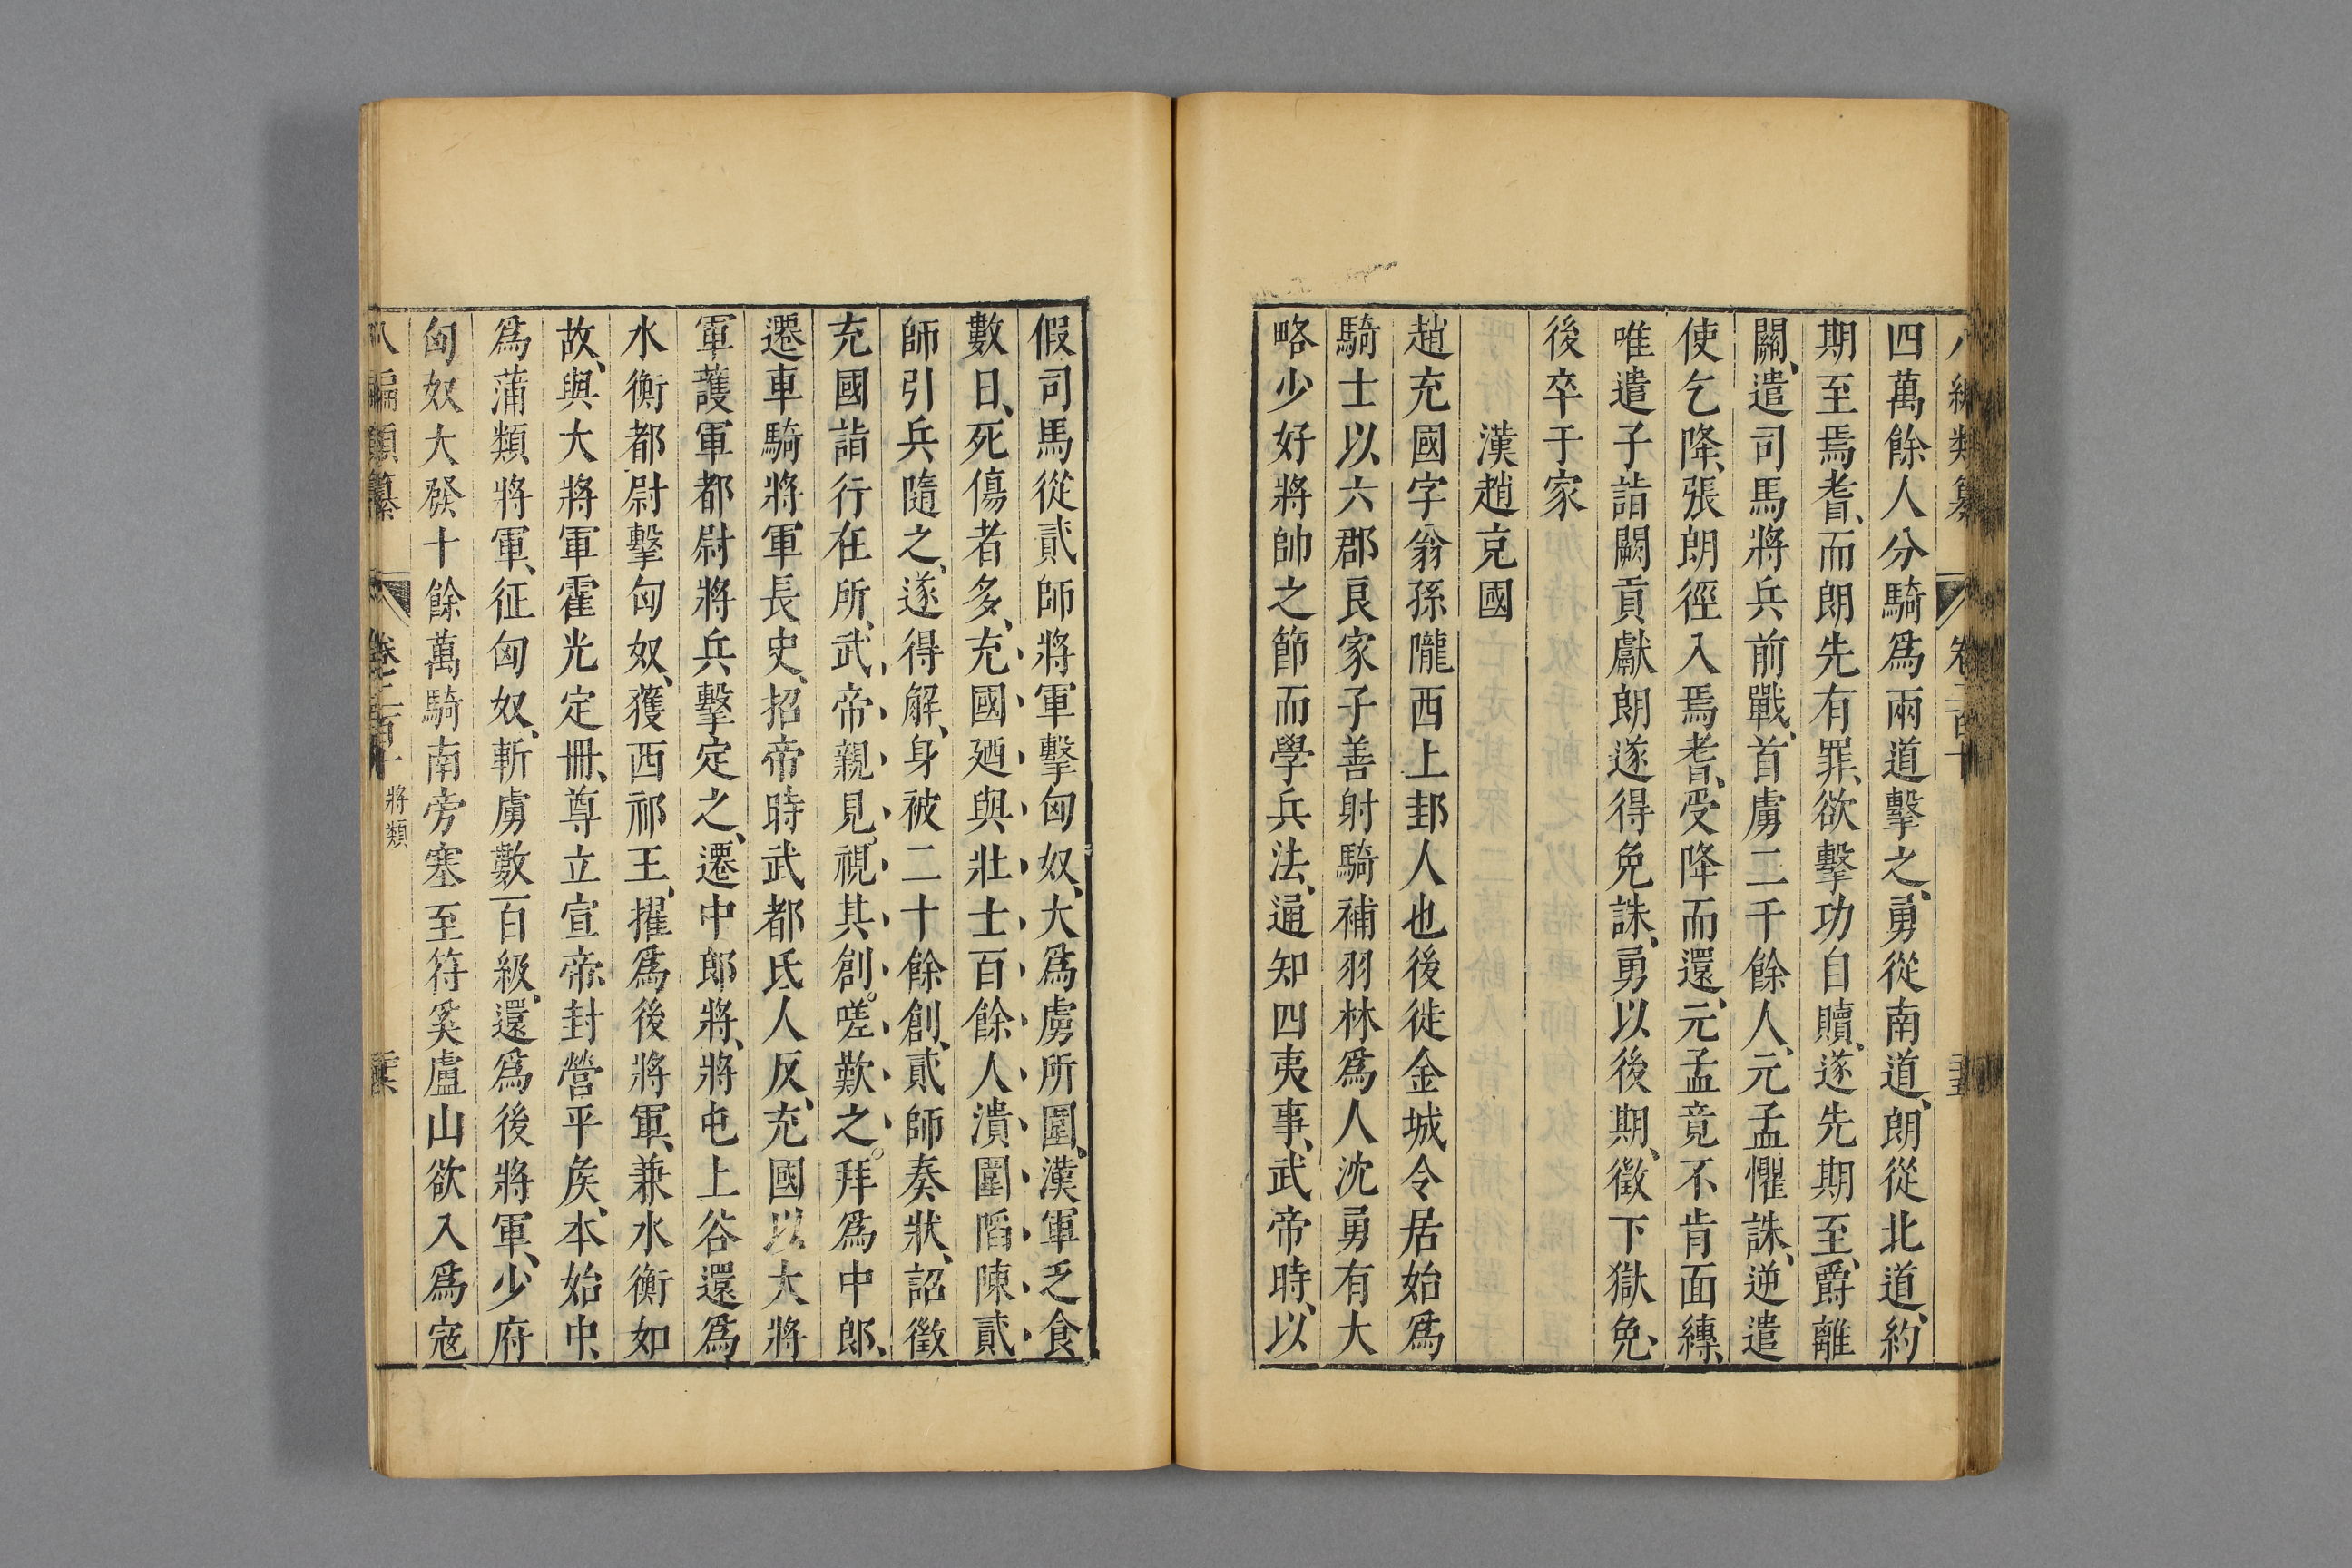 四萬餘人分騎爲兩道擊之、勇從南道、朗從北道、約
期至焉耆、而朗先有罪、欲擊功自贖、遂先期至、爵離
關、遣司馬將兵前戰、首虜二千餘人、元孟懼誅、逆遣
使乞降、張朗徑入焉耆、受降而還、元孟竟不肯面縳、
唯遣子詣闕貢獻朗遂得免誅、勇以後期、徵下獄免、
後卒于家
漢趙克國
趙充國字翁孫隴西上邽人也後徙金城令居始爲
騎士以六郡良家子善射騎補羽林爲人沈勇有大
略少好將帥之節而學兵法、通知四夷事、武帝時、以
假司馬從貳師將軍擊匈奴、大爲虜所圍、漢軍乏食
數日、死傷者多、充國廼與壯士百餘人潰圍陷陳貳
師引兵隨之、遂得解、身被二十餘創、貳師奏狀、詔徵
充國詣行在所、武帝親見。視其創。嗟歎之。拜爲中郎、
遷車騎將軍長史、招帝時武都氐人反、充國以大將
軍護軍都尉將兵擊定之、遷中郎將、將屯上谷還爲
水衡都尉擊匈奴、獲西祁王、擢爲後將軍、兼水衡如
故、與大將軍霍光定冊、尊立宣帝封營平矦、本始中、
爲蒲類將軍、征匈奴、斬虜數百級、還爲後將軍、少府
匈奴大發十餘萬騎南旁塞至符奚盧山欲入爲寇
八編類纂 卷之二百十 將類